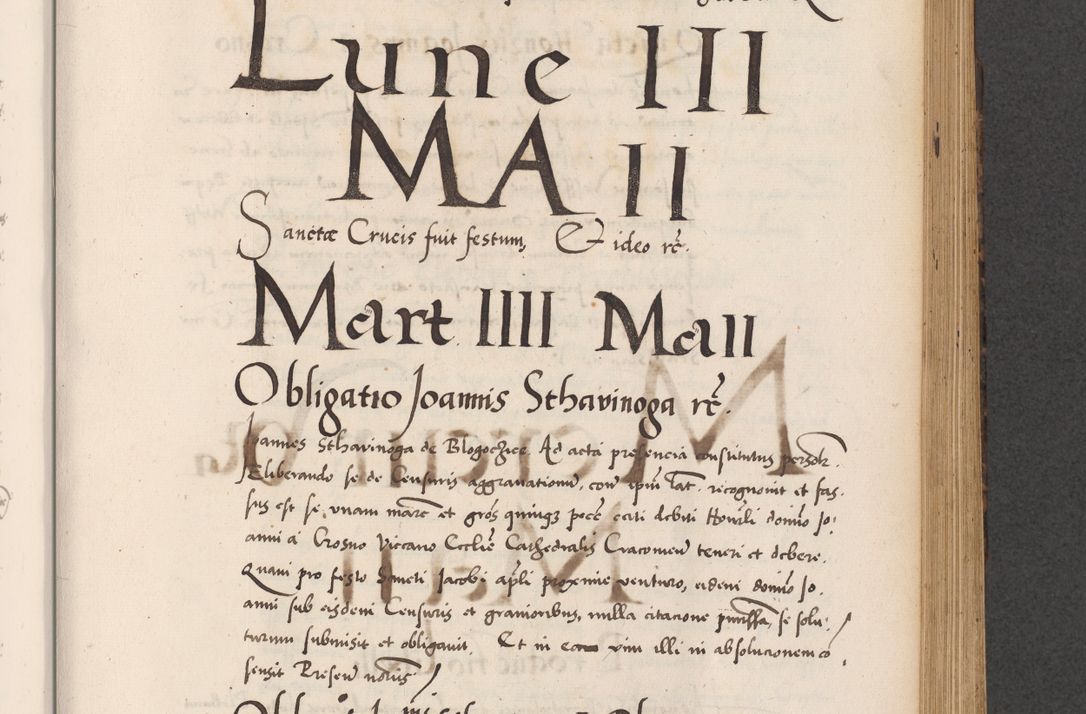 Lune III
MAII
Sanctæ Crucis fuit festum, Et ideo rc̃.
Mart IIII Maii
Obligatio Joannis Sthavinoga rc̃.
Joannes Sthavinoga de Blogoczice. Ad acta presencia constitutus personlr.
Eliberando se de Censuris aggravationū, con ipm̄ lat. recognovit et fas:
sus est se, unam marc̄ et gros quinqȝ pecē ... debiti Honorli domino Jo:
anni a Crosno Vicario Ecclīe Cathedralis Cracovien̄ teneri et debere.
Quam pro festo Sancti Jacobi apli proxime venturo, eidem domino Jo.
anni sub eisdem Censuris et gravioribus, nulla citacione pmissa, se solu:
turum submisit et obligavit. Et in ... unu illi in absolucionem cō
sensit Presen̄ nōtīs